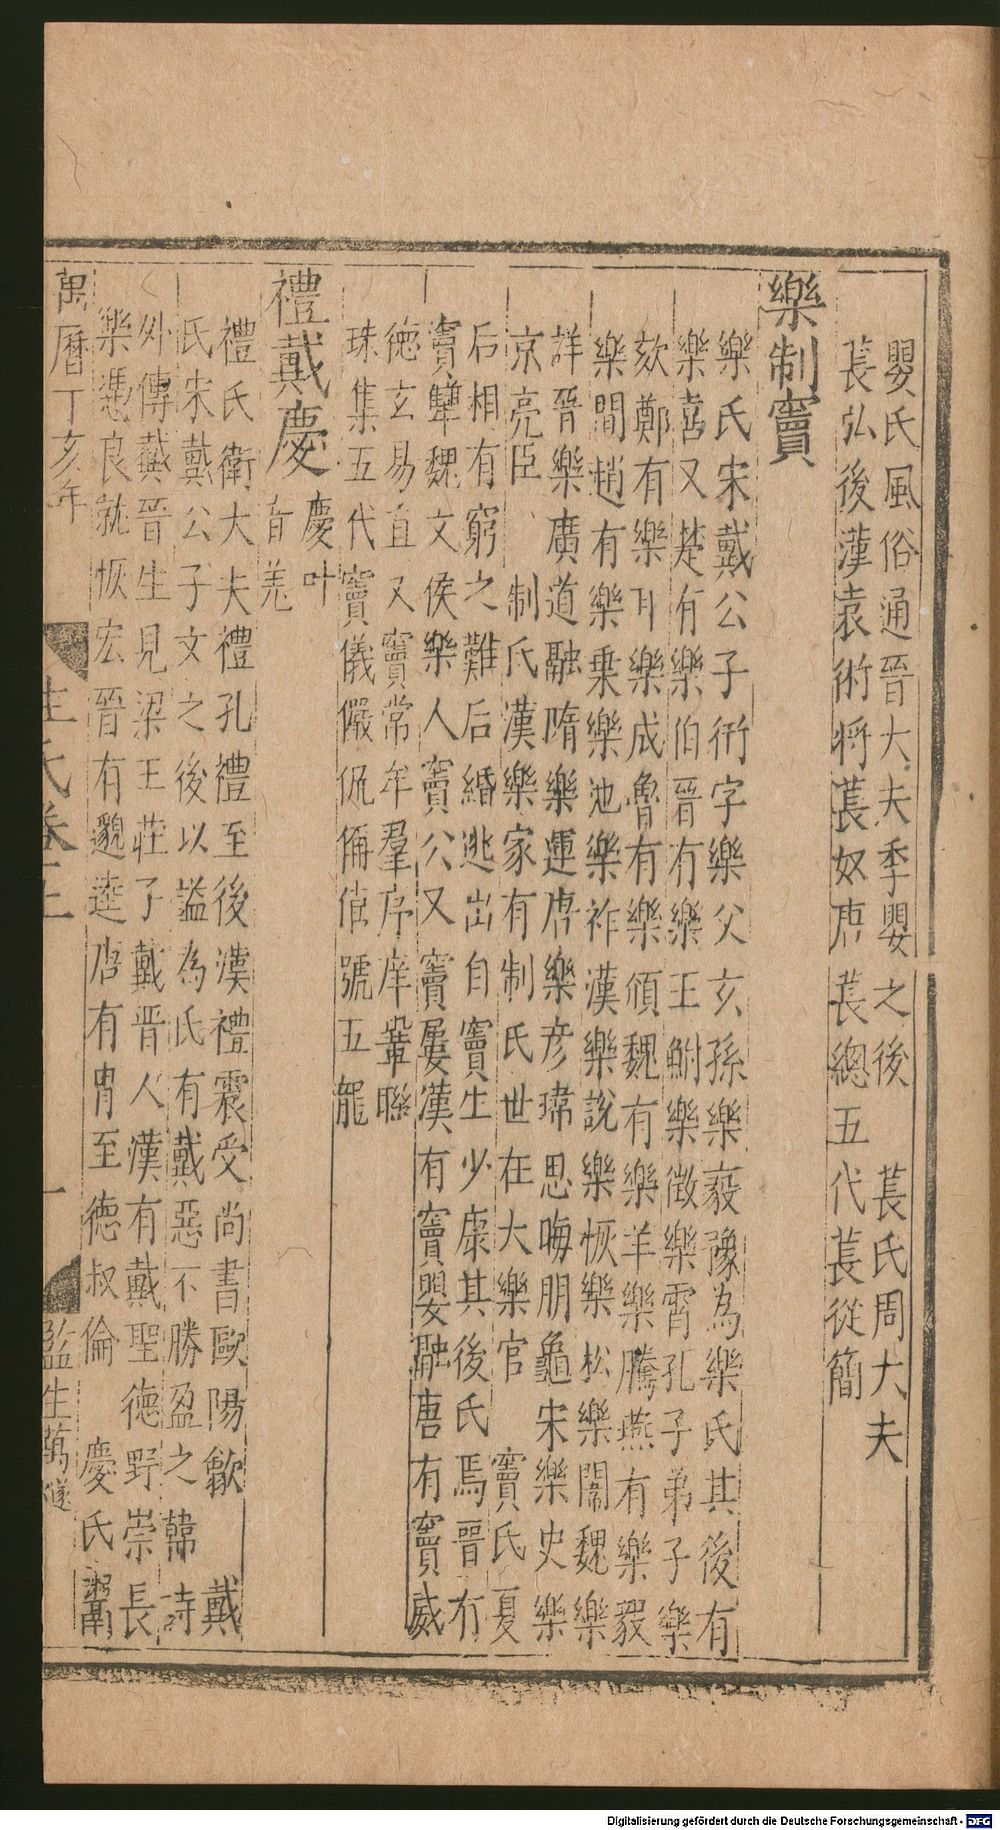 嬰氏風俗通晉大夫季嬰之後　萇氏周大夫
萇弘後漢袁術將萇奴唐萇總五代萇從簡
樂制竇
樂氏宋戴公子衎字樂父玄孫樂豫為樂氏其後有
樂喜又楚有樂伯晉有樂王鮒樂徵樂霄孔子弟子樂
欬鄭有樂耳樂成魯有樂頎魏有樂羊樂騰燕有樂毅
樂間趙有樂乘樂池樂祚漢樂說樂恢樂松樂闇魏樂
詳晉樂廣道融隋樂運唐樂彥瑋思晦朋龜宋樂史樂
京亮臣　制氏漢樂家有制氏世在大樂官　竇氏夏
后相有窮之難后緡逃出自竇生少康其後氏焉晉有
竇犨魏文侯樂人竇公又竇婁漢有竇嬰融唐有竇威
德玄易直又竇常牟羣序庠鞏聯
珠集五代竇儀儼侃偁僖號五龍
禮戴慶　慶叶
音羗
禮氏衛大夫禮孔禮至後漢禮震受尚書歐陽歙　戴
氏宋戴公子文之後以謚為氏有戴惡不勝盈之韓詩
外傳戴晉生見梁王莊子戴晉人漢有戴聖德野崇長
樂憑良就恢宏晉有邈逵唐有胄至德叔倫　慶氏
萬曆丁亥年
姓氏卷上
一
監生萬
Digitalisierung gefördert durch die Deutsche Forschungsgemeinschaft - DFG